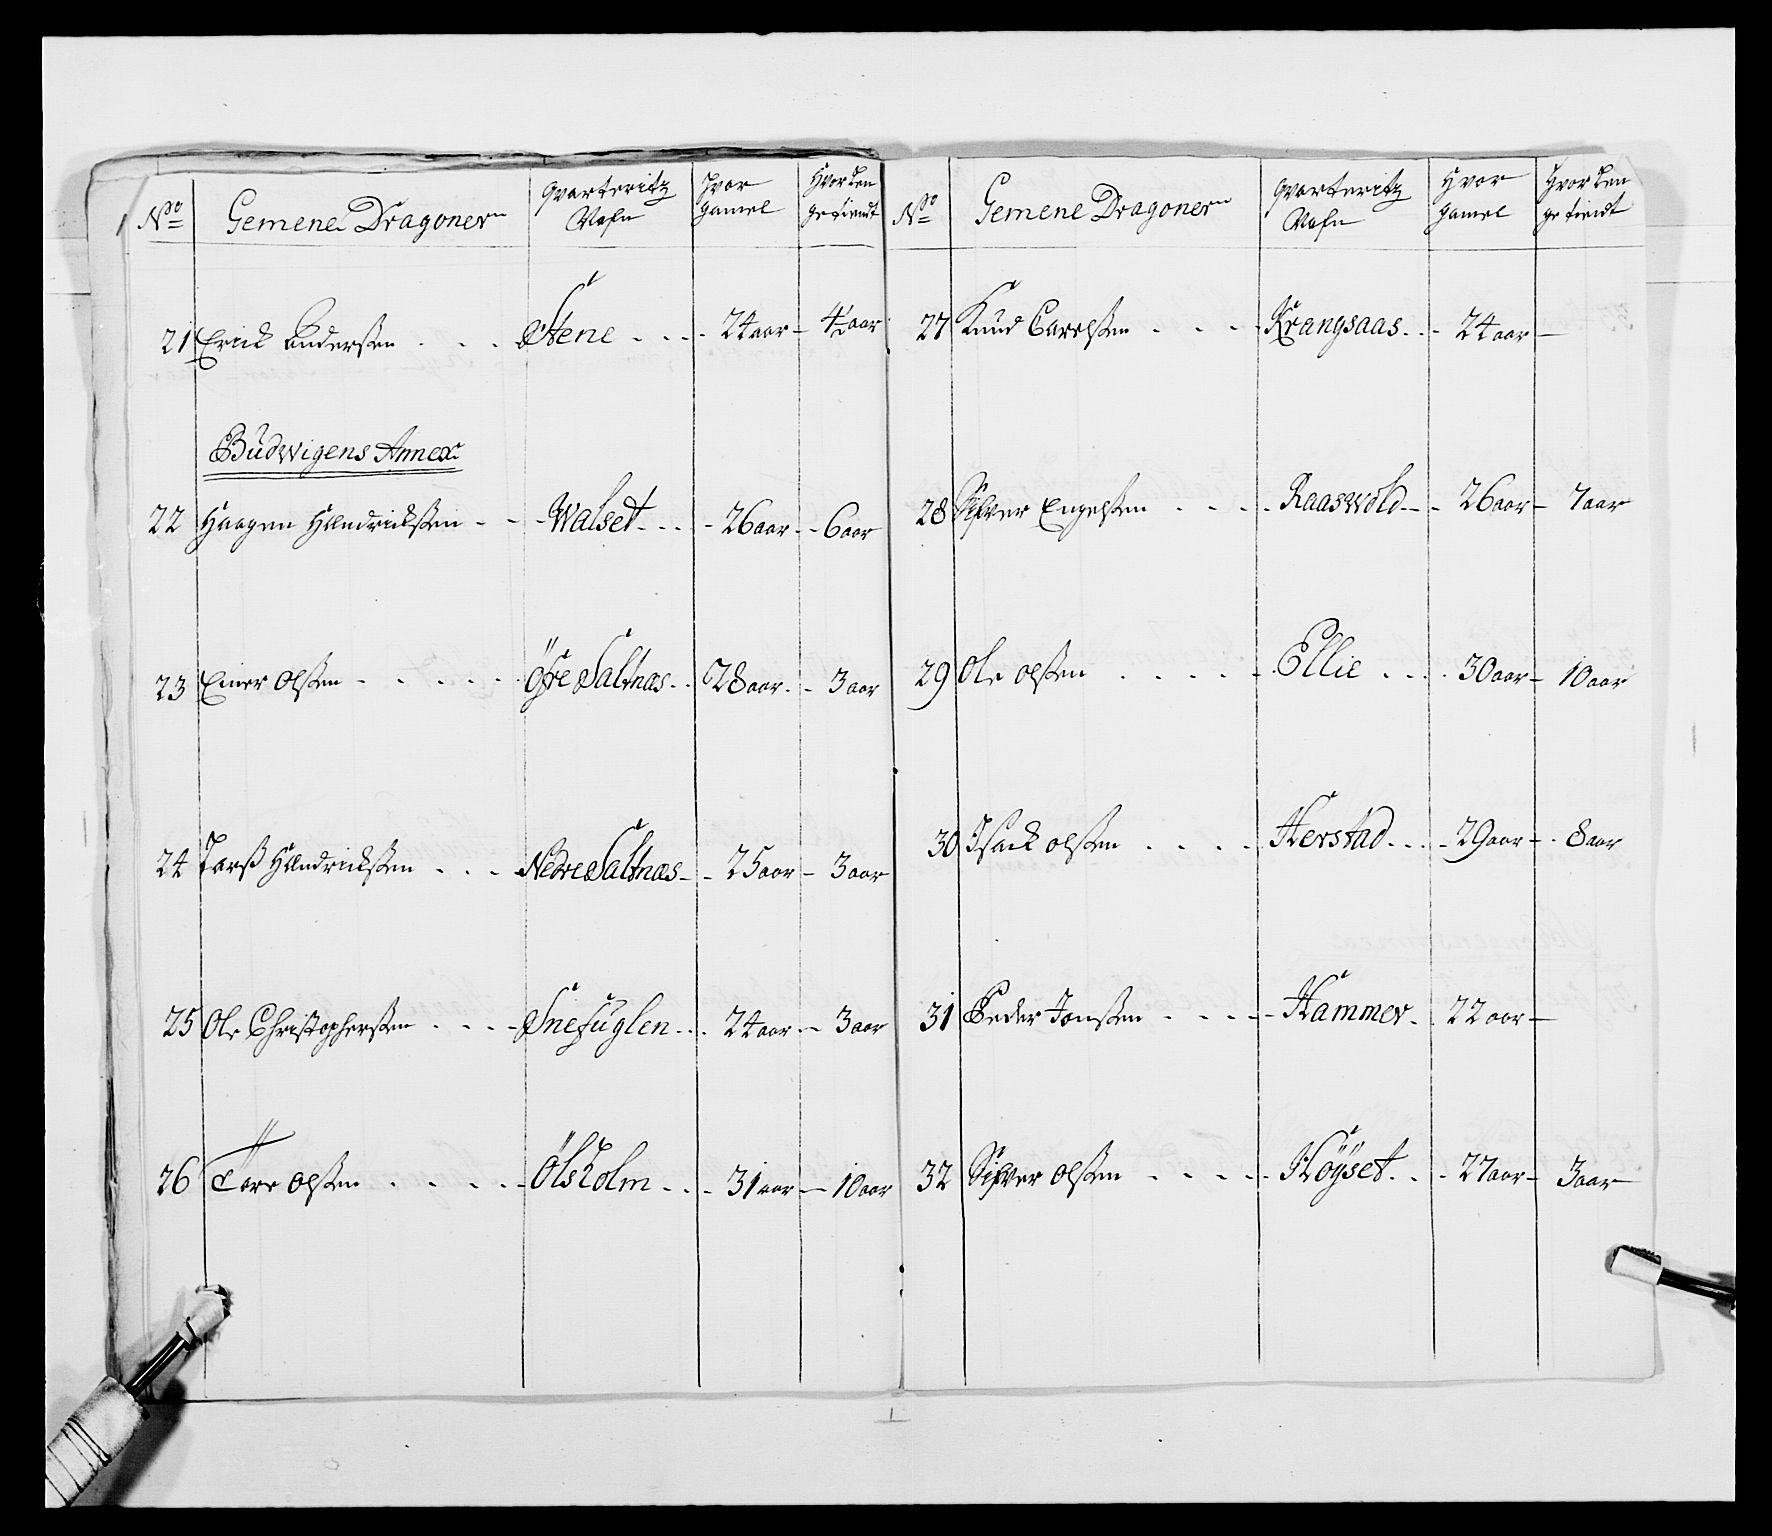 No Gemene Dragoner Qvarteritz Nafn Hvor gamel Hvor len gethient
21 Erick Anderssen Stene 24 aar 4½ aar
Budwigens Annex
22 Haagen Hendrickssen Walset 26 aar 6 aar
23 Einer Olssen Öfre Saltnæs 28 aar 3 aar
24 Larss Hendrickssen Nedre Saltnæs 25 aar 3 aar
25 Ole Christophersen Snefuglen 24 aar 3 aar
26 Tore Olssen Ölsholm 31 aar 10 aar
No Gemene Dragoner Qvarteritz Nafn Hvor gamel Hvor len gethient
27 Knud Carelssen Krangsaas 24 aar
28 Sifver Engelssen Raaswold 26 aar 7 aar
29 Ole Olssen Ellie 30 aar 10 aar
30 Isack Olssen Herstad 29 aar 8 aar
31 Peder Jonssen Hammer 22 aar
32 Sifver Olssen Höyset 27 aar 3 aar